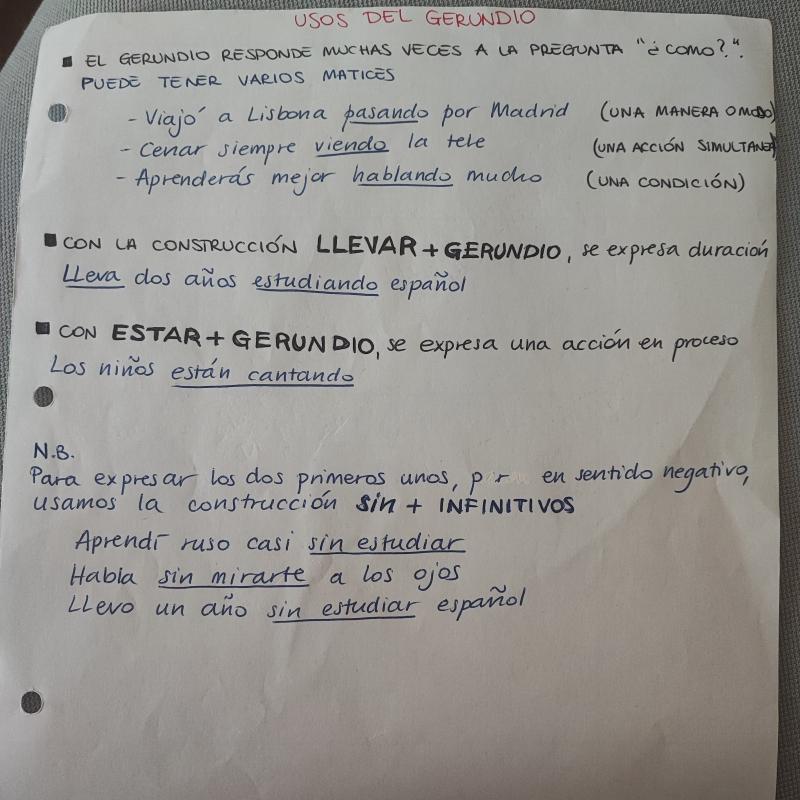 USOS DEL GERUNDIO
▪ EL GERUNDIO RESPONDE MUCHAS VECES A LA PREGUNTA "¿COMO?".
PUEDE TENER VARIOS MATICES
- Viajó a Lisbona pasando por Madrid (UNA MANERA O MODO)
- Cenar siempre viendo la tele (UNA ACCIÓN SIMULTANEA)
- Aprenderás mejor hablando mucho (UNA CONDICIÓN)
▪ CON LA CONSTRUCCIÓN LLEVAR + GERUNDIO, se expresa duración
Lleva dos años estudiando español
▪ CON ESTAR + GERUNDIO, se expresa una acción en proceso
Los niños están cantando
N.B.
Para expresar los dos primeros unos, en sentido negativo,
usamos la construcción sin + INFINITIVOS
Aprendí ruso casi sin estudiar
Habla sin mirarte a los ojos
Llevo un año sin estudiar español